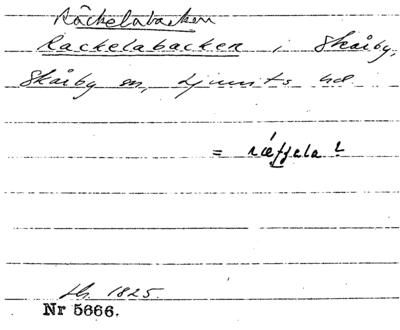 Räckelabacken
Rackelabacken i Skårby,
Skårby sn, Ljunits hd.
= ræffela?
1825.
Nr 5666.